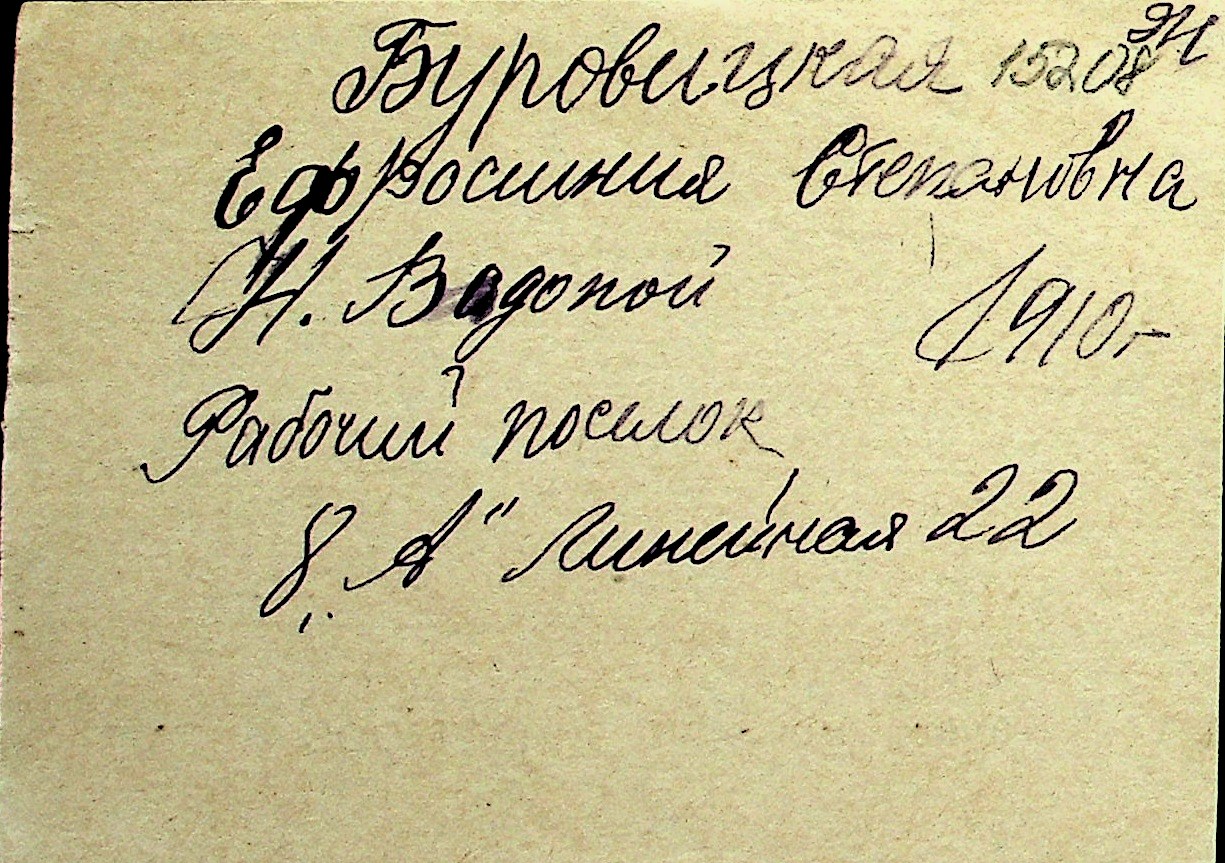 Буровицкая 15208 ЯН
Ефросиния Степановна
Н. Водопой 1910г
Рабочий поселок
8 „А" Линейная 22